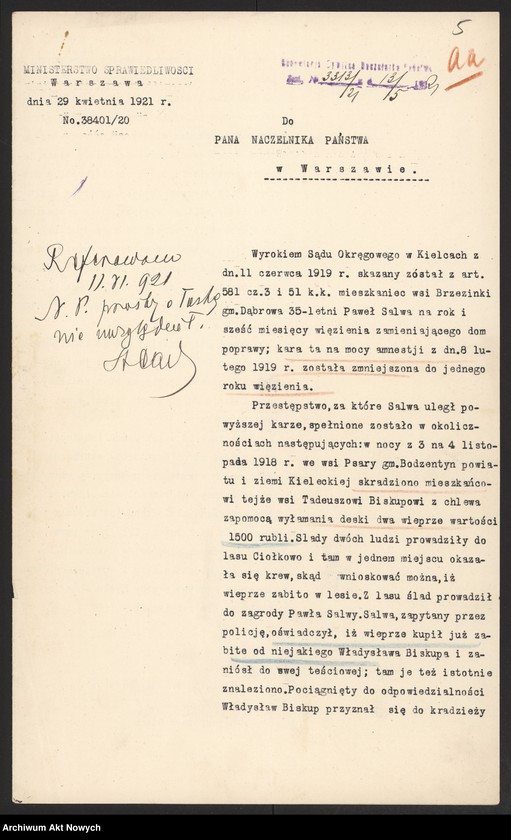 5
aa
MINISTERSTWO SPRAWIEDLIWOŚCI
Warszawa
dnia 29 kwietnia 1921 r.
No.38401/20
Do
PANA NACZELNIKA PAŃSTWA
w Warszawie.
Referowano
11.VI.921
N.P. prośby o łaskę
nie uwzględnił.
Wyrokiem Sądu Okręgowego w Kielcach z
dn.11 czerwca 1919 r. skazany zóstał z art.
581 cz.3 i 51 k.k. mieszkaniec wsi Brzezinki
gm.Dąbrowa 35-letni Paweł Salwa na rok i
sześć miesięcy więzienia zamieniającego dom
poprawy; kara ta na mocy amnestji z dn.8 lu-
tego 1919 r. została zmniejszona do jednego
roku więzienia.
Przestępstwo,za które Salwa uległ po-
wyższej karze,spełnione zostało w okolicz-
nościach następujących:w nocy z 3 na 4 listo-
pada 1918 r. we wsi Psary gm.Bodzentyn powia-
tu i ziemi Kieleckiej skradziono mieszkańco-
wi tejże wsi Tadeuszowi Biskupowi z chlewa
zapomocą wyłamania deski dwa wieprze wartości
1500 rubli.Slady dwóch ludzi prowadziły do
lasu Ciołkowo i tam w jednem miejscu okaza-
ła się krew,skąd wnioskować można,iż
wieprze zabito w lesie.Z lasu ślad prowadził
do zagrody Pawła Salwy.Salwa,zapytany przez
policję,oświadczył, iż wieprze kupił już za-
bite od niejakiego Władysława Biskupa i za-
niósł do swej teściowej; tam je też istotnie
znaleziono.Pociągnięty do odpowiedzialności
Władysław Biskup przyznał się do kradzieży
Archiwum Akt Nowych